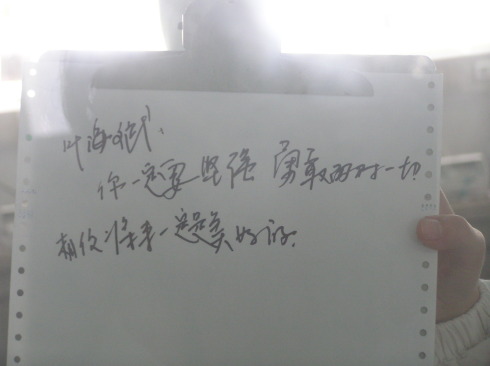 叶海
你一定要坚强 勇敢面对一切
相信将来一定是美好的.